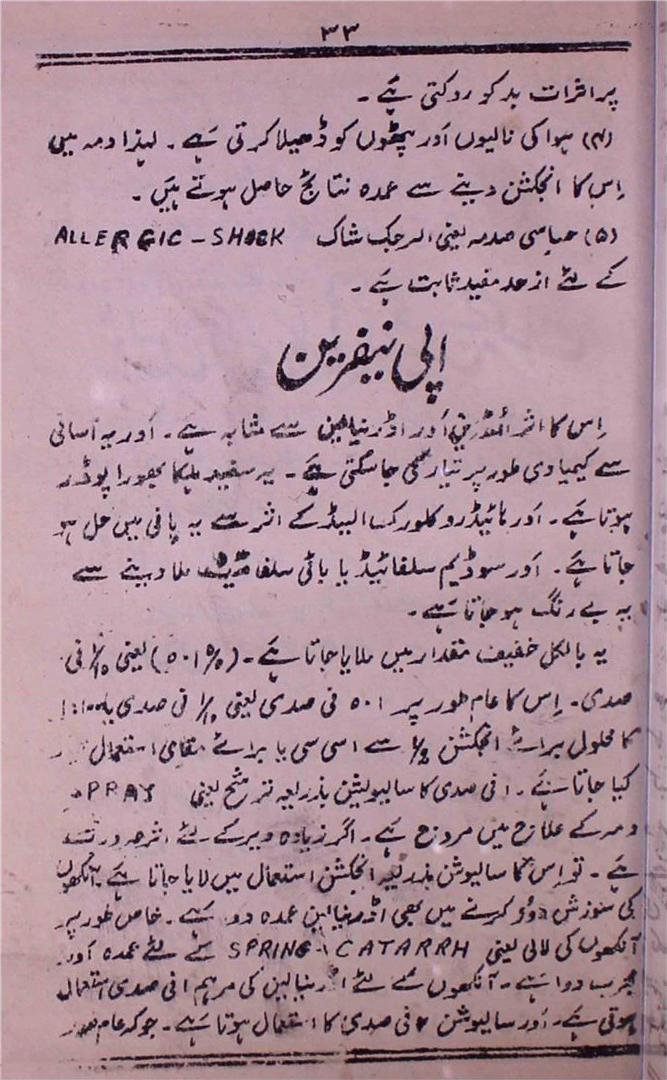 ۳۳
پر اثرات بد کو روکتی ہے۔
(۴) ہوا کی نالیوں اَور پٹھوں کو ڈھیلا کرتی ہَے۔ لہٰذا دمہ میں
اِس کا انجکشن دینے سے عمدہ نتائج حاصل ہوتے ہَیں۔
(۵) حساسی صدمہ یعنی الرجک شاک ALLERGIC - SHOCK
کے لئے از حد مفید ثابت ہَے۔
اپی نیفرین
اِس کا اثر اَور اڈرنیالین سے مشابہ ہے۔ اَور یہ آسانی
سے کیمیاوی طور پر تیار کی جا سکتی ہَے۔ یہ سفید ہلکا بھورا پوڈر
ہوتا ہَے۔ اَور ہائیڈروکلورک ایسڈ کے اثر سے یہ پانی میں حل ہو
جاتا ہَے۔ اَور سوڈیم سلفائیڈ یا بائی سلفائیٹ ملا دینے سے
یہ بے رنگ ہو جاتا ہَے۔
یہ بالکل خفیف مقدار میں ملایا جاتا ہَے۔ (۰۱۵%) یعنی ۱/۱۰ فی
صدی۔ اِس کا عام طور پر ۰۱ فی صدی یعنی ۱/۱۰ فی صدی یا ۱:۱۰۰۰
کا محلول برائے انجکشن ۱/۲ سے ا سی سی یا برائے مقامی استعمال
کیا جاتا ہَے۔ ا فی صدی کا سالیوشن بذریعہ ترشح یعنی SPRAY
دمہ کے علاج میں مروج ہَے۔ اگر زیادہ دیر کے لئے اثر ضرورت
ہَے۔ تو اِس کا سالیوشن بذریعہ انجکشن استعمال میں لایا جاتا ہَے۔ آنکھوں
کی سوزش دُور کرنے میں بھی اڈرنیالین عمدہ دوا ہَے۔ خاص طور پر
آنکھوں کی لالی یعنی SPRING CATARRH کے لئے عمدہ اَور
مجرب دوا ہَے۔ آنکھوں کے لئے اڈرنیالین کی مرہم ا فی صدی استعمال
ہوتی ہَے۔ اَور سالیوشن فی صدی کا استعمال ہوتا ہَے۔ جو کہ عام طور